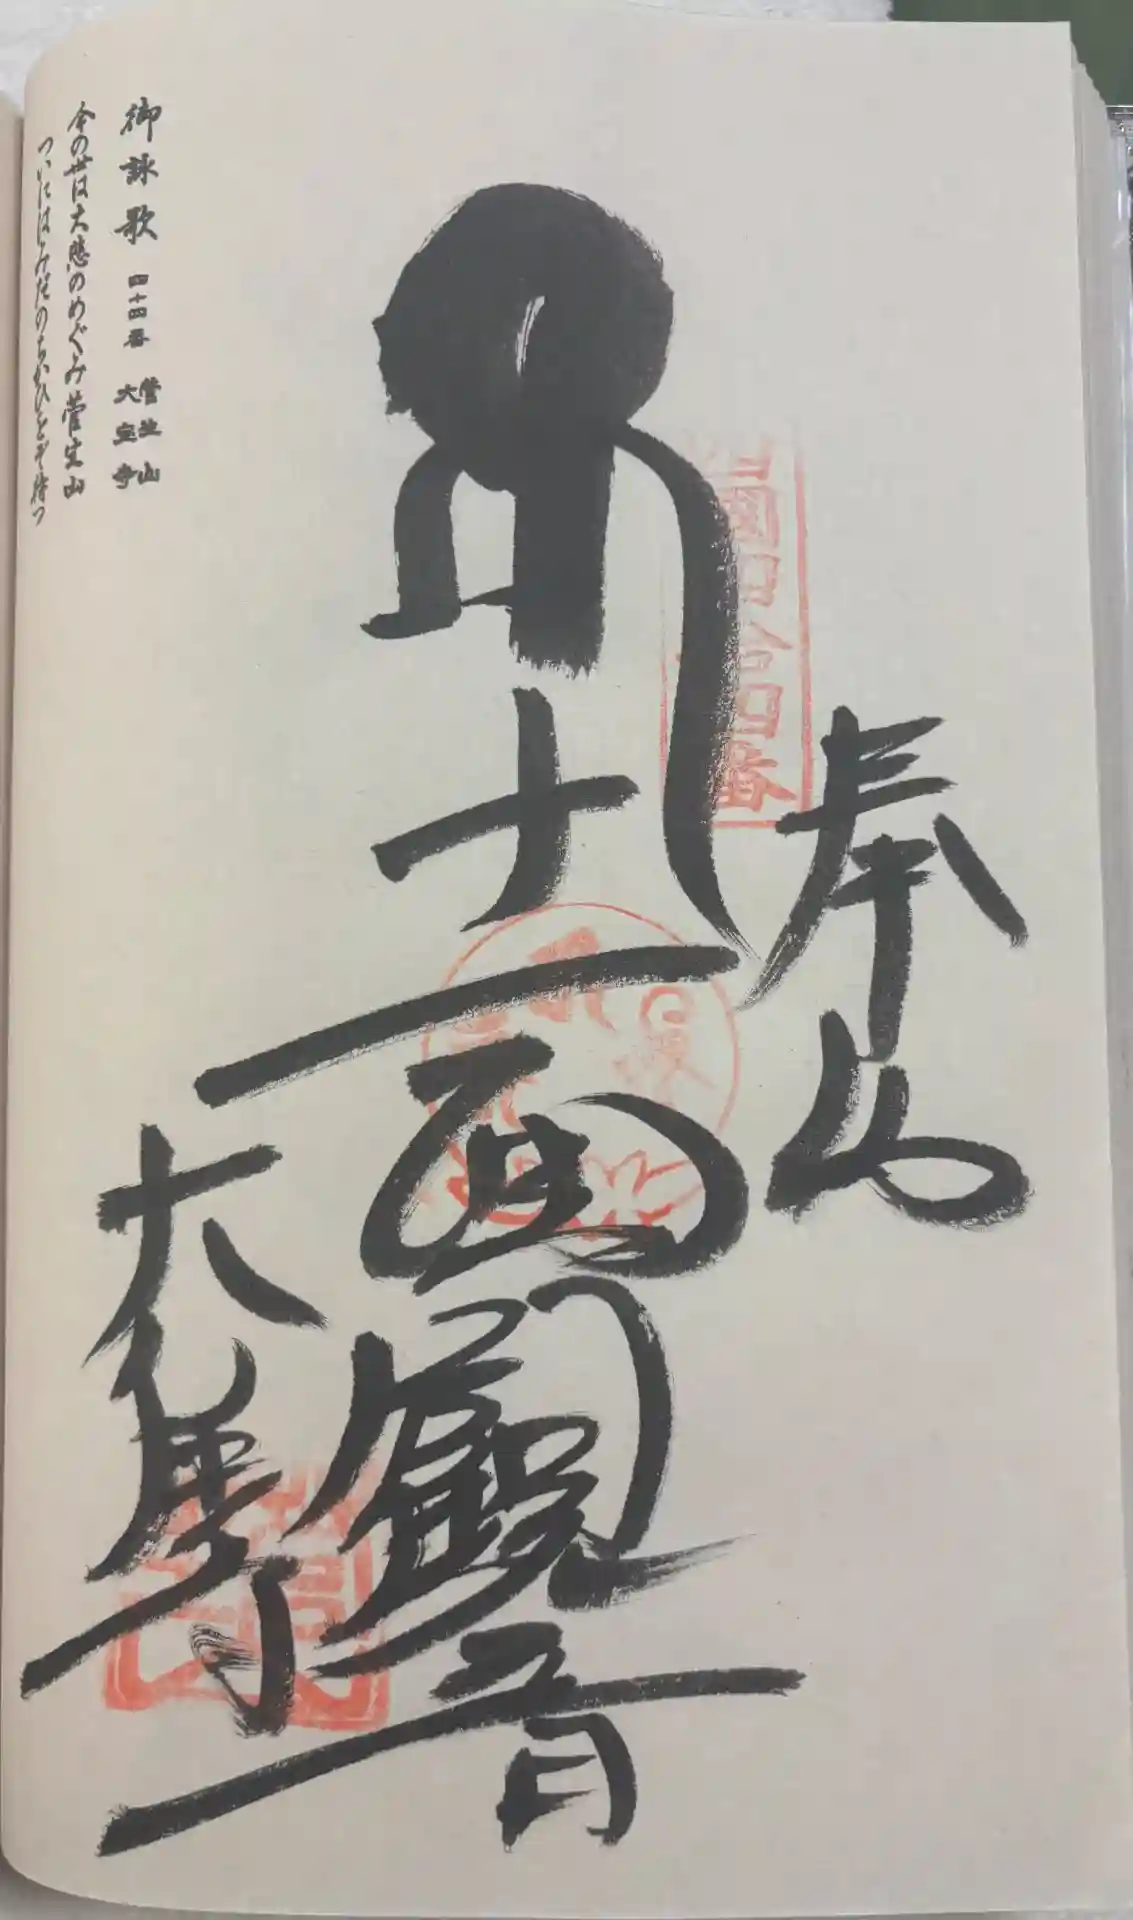 奉納
四国四十四番
十一面観音
大宝寺
御詠歌 四十四番 菅生山 大宝寺
今の世は大悲のめぐみ菅生山
ついにはみだのちかひをぞ待つ